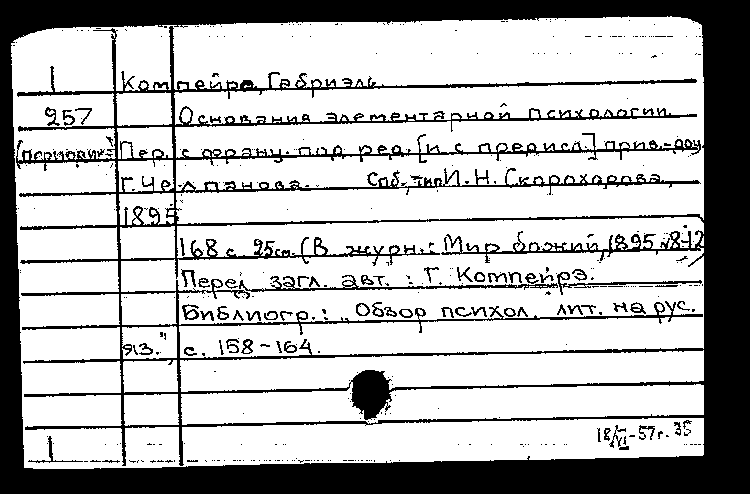 I Компейрэ, Габриэль.
257 Основания элементарной психологии.
(периодик= Пер. с франц. под ред. [и с предисл.] прив.-доц.
Г. Челпанова. Спб., тип. И. Н. Скороходова,
1895
168 с. 25 см. (В журн.: Мир божий, 1895, №8-12)
Перед загл. авт.: Г. Компейрэ.
Библиогр.: „Обзор психол. лит. на рус.
яз.", с. 158-164.
18/VI-57г. 35
I